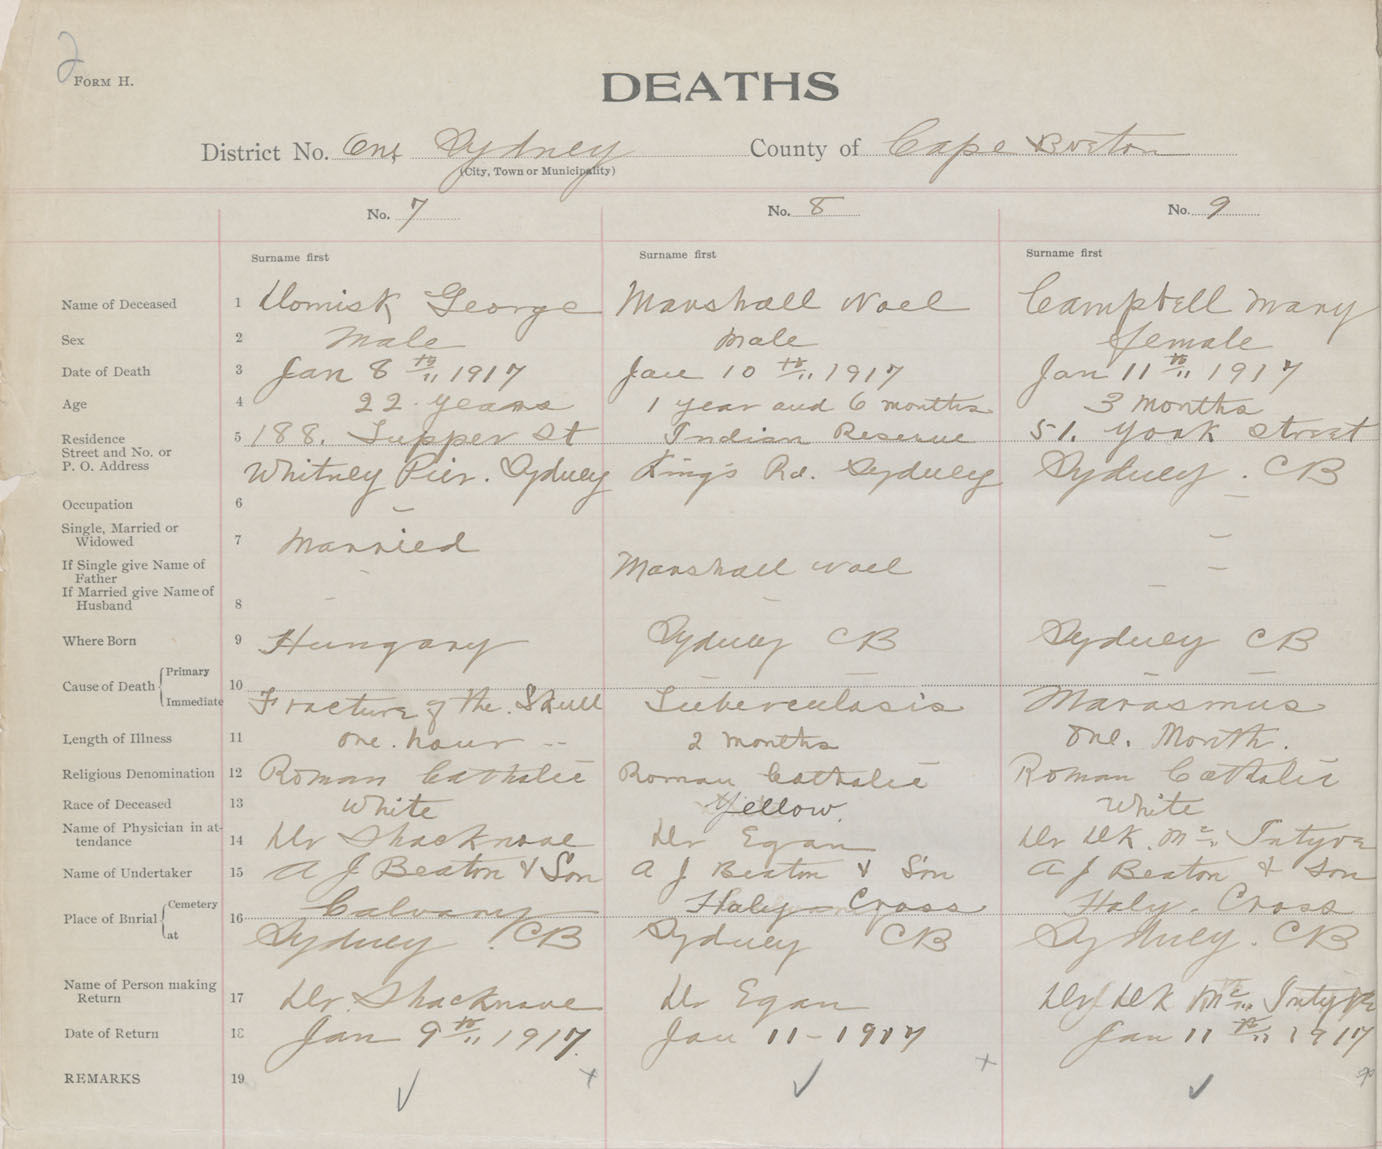 2
FORM H.
DEATHS
District No. One Sydney County of Cape Breton
(City, Town or Municipality)
No. 7 No. 8 No. 9
Surname first Surname first Surname first
Name of Deceased 1 Domisk George Marshall Noel Campbell Mary
Sex 2 Male Male female
Date of Death 3 Jan 8th 1917 Jan 10th 1917 Jan 11th 1917
Age 4 22 years 1 year and 6 months 3 months
Residence 5 188. Tupper St Indian Reserve 51. York Street
Street and No. or
P. O. Address Whitney Pier. Sydney King's Rd. Sydney Sydney. CB
Occupation 6 –
Single, Married or
Widowed 7 Married –
If Single give Name of
Father – Marshall Noel –
If Married give Name of
Husband 8 – – –
Where Born 9 Hungary Sydney CB Sydney CB
Cause of Death Primary 10 – – – –
Immediate Fracture of the Skull Tuberculosis Marasmus
Length of Illness 11 one. hour -- 2 months One. Month.
Religious Denomination 12 Roman Catholic Roman Catholic Roman Catholic
Race of Deceased 13 White Yellow. White
Name of Physician in at-
tendance 14 Dr Shacknove Dr Egan Dr DK. Mc Intyre
Name of Undertaker 15 A J Beaton & Son A J Beaton & Son A J Beaton & Son
Place of Burial Cemetery 16 Calvary Holy Cross Holy. Cross
at Sydney. CB Sydney CB Sydney. CB
Name of Person making
Return 17 Dr. Shacknove Dr Egan Dr DK Mc Intyre
Date of Return 18 Jan 9th 1917. Jan 11 – 1917 Jan 11th 1917
REMARKS 19